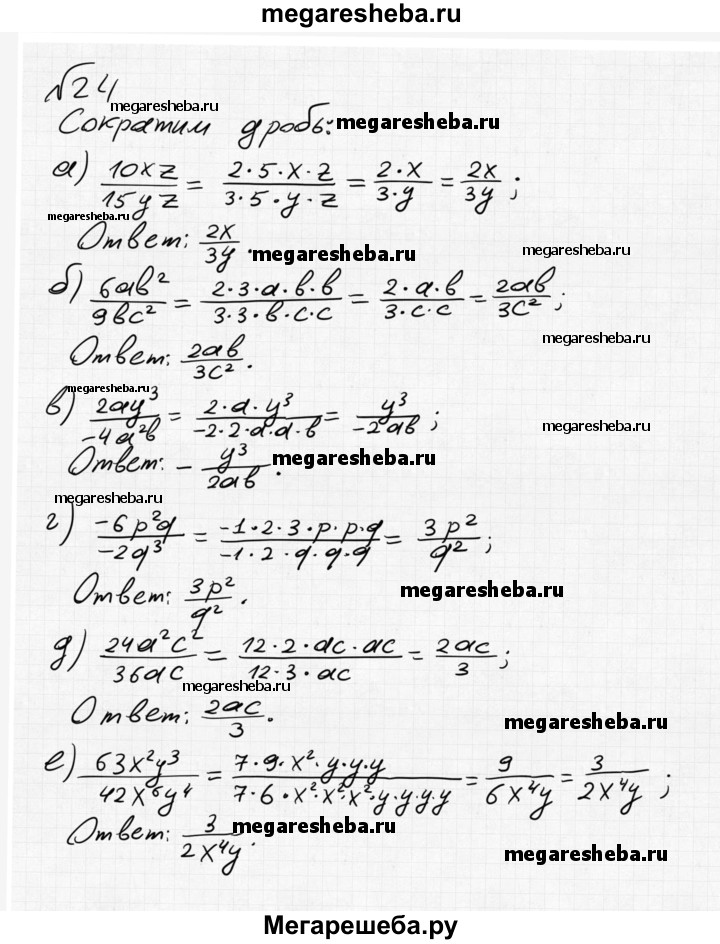 megaresheba.ru
№24
megaresheba.ru
Сократим дробь: megaresheba.ru
а) 10xz/15yz = 2·5·x·z/3·5·y·z = 2·x/3·y = 2x/3y ;
megaresheba.ru
Ответ: 2x/3y . megaresheba.ru megaresheba.ru
б) 6ab²/9bc² = 2·3·a·b·b/3·3·b·c·c = 2·a·b/3·c·c = 2ab/3c² ;
Ответ: 2ab/3c² .
megaresheba.ru
в) 2ay³/-4a²b = 2·a·y³/-2·2·a·a·b = y³/-2ab ; megaresheba.ru
Ответ: - y³/2ab . megaresheba.ru
megaresheba.ru
г) -6p²q/-2q³ = -1·2·3·p·p·q/-1·2·q·q·q = 3p²/q² ;
Ответ: 3p²/q² . megaresheba.ru
д) 24a²c²/36ac = 12·2·ac·ac/12·3·ac = 2ac/3 ;
megaresheba.ru
Ответ: 2ac/3 . megaresheba.ru
е) 63x²y³/42x⁶y⁴ = 7·9·x²·y·y·y/7·6·x²·x²·x²·y·y·y·y = 9/6x⁴y = 3/2x⁴y ;
Ответ: 3/2x⁴y . megaresheba.ru
megaresheba.ru
Мегарешеба.ру